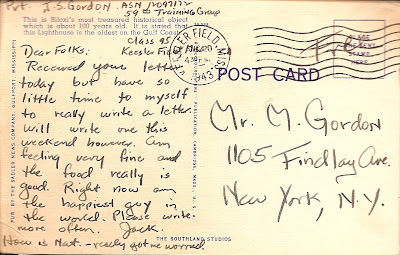 Pvt. J.S. Gordon ASN 12097172
59th Training Group
This is Biloxi's most treasured historical object
which is about 100 years old. It is stated that
this Lighthouse is the oldest on the Gulf Coast
Class 95
Keesler Field
Dear Folks:
Received your letter
today but have so
little time to myself
to really write a letter.
Will write one this
weekend however. Am
feeling very fine and
the food really is
good. Right now am
the happiest guy in
the world. Please write
more often. Jack.
How is Nat - really got me worried.
PUB. BY THE SADLER NEWS COMPANY, GULFPORT, MISSISSIPPI
KEESLER FIELD, MISS.
1943
PLACE
STAMP
HERE
POST CARD
Mr. M. Gordon
1105 Findlay Ave.
New York, N.Y.
THE SOUTHLAND STUDIOS